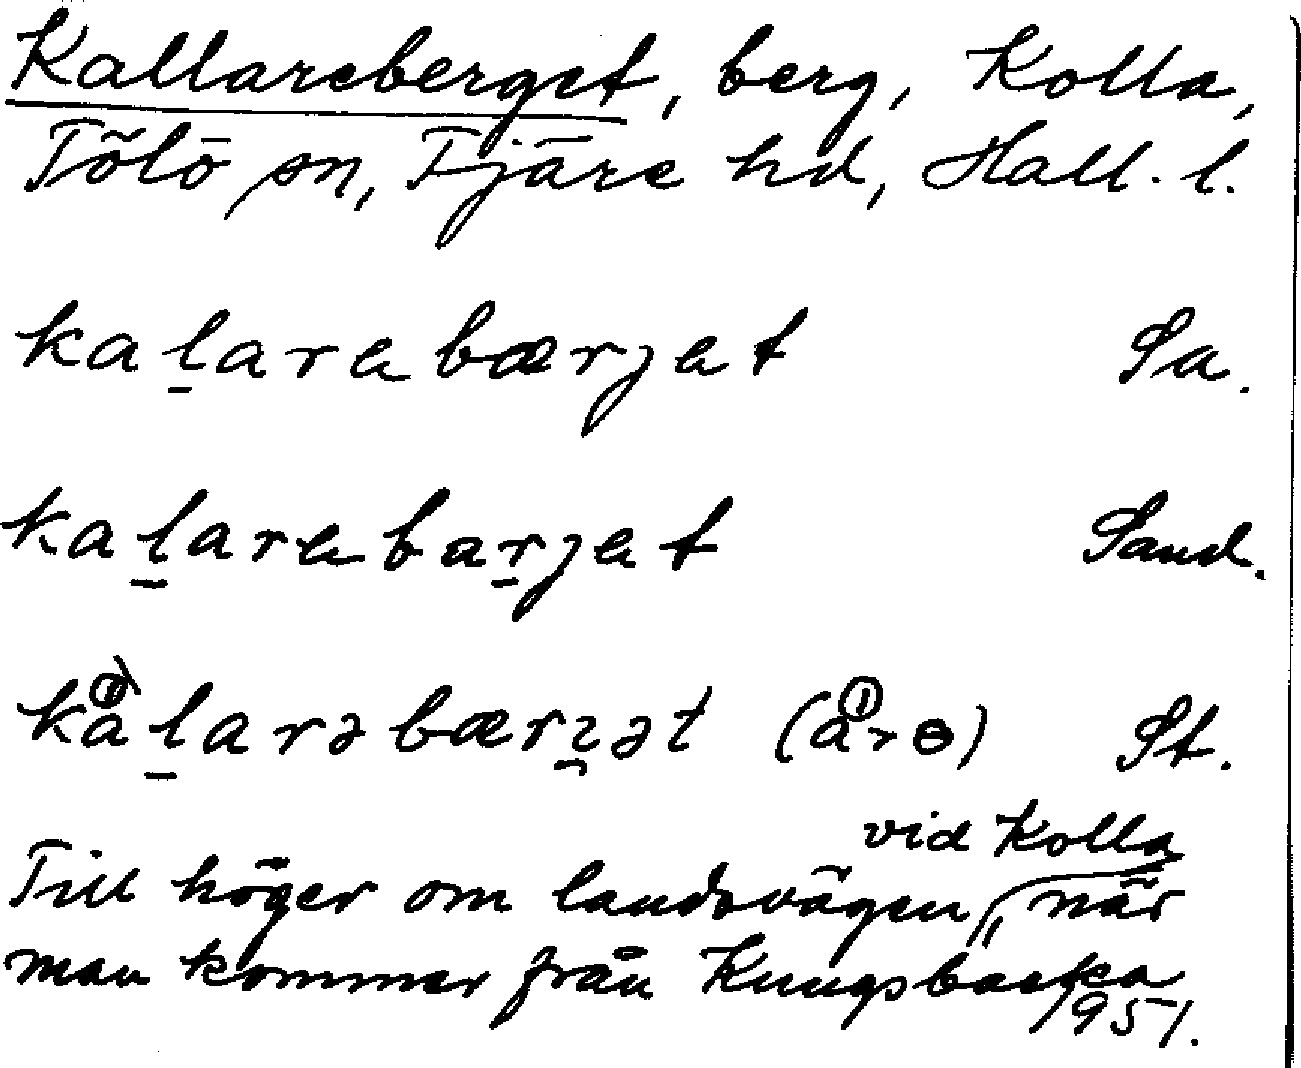 Kallareberget, berg, Kolla,
Tölö sn, Fjäre hd, Hall. l.
kaḻarebærjet Sa.
kaḻarebaṟjet Sand.
kåḻarəbærʒət (å r ɵ) St.
vid Kolla
Till höger om landsvägen, när
man kommer från Kungsbacka
1951.